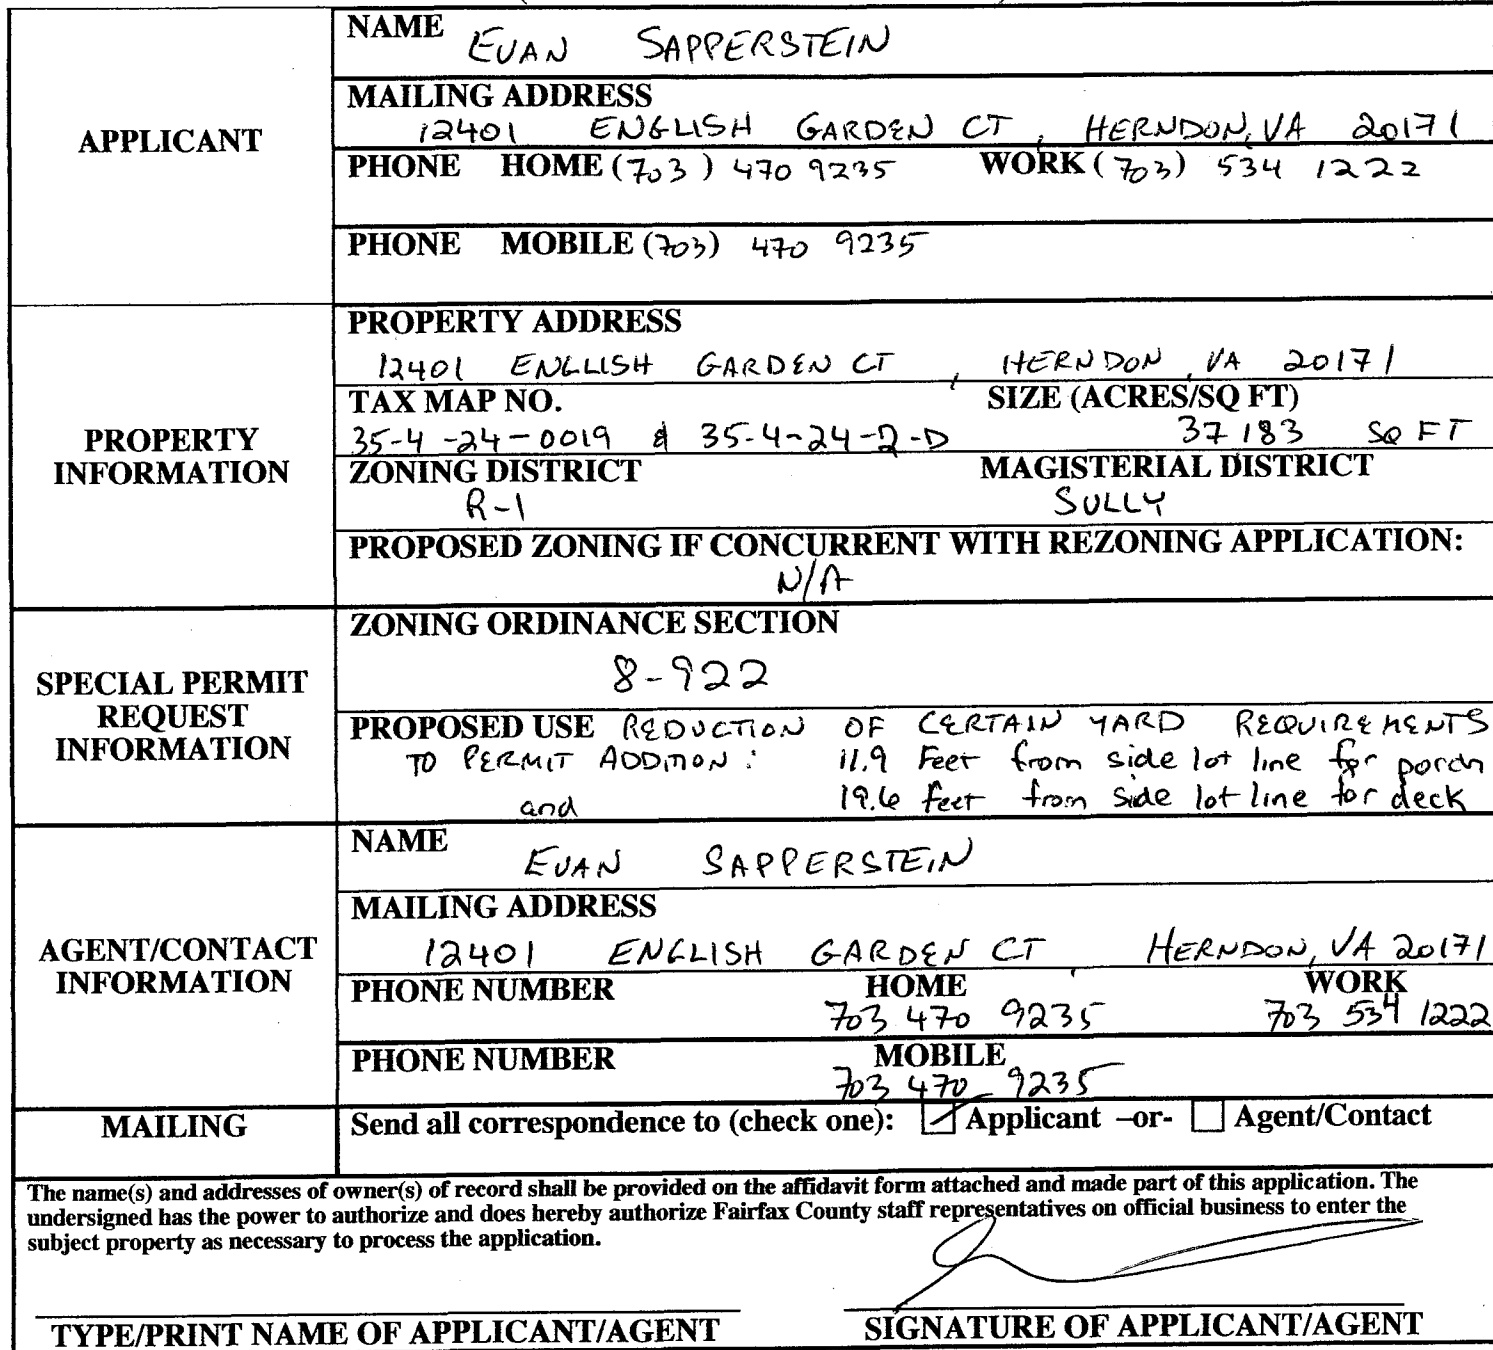 NAME EVAN SAPPERSTEIN
MAILING ADDRESS
12401 ENGLISH GARDEN CT, HERNDON, VA 20171
APPLICANT
PHONE HOME (703) 470 9235 WORK (703) 534 1222
PHONE MOBILE (703) 470 9235
PROPERTY ADDRESS
12401 ENGLISH GARDEN CT, HERNDON, VA 20171
TAX MAP NO. SIZE (ACRES/SQ FT)
35-4-24-0019 & 35-4-24-2-D 37 183 SQ FT
PROPERTY
INFORMATION
ZONING DISTRICT MAGISTERIAL DISTRICT
R-1 SULLY
PROPOSED ZONING IF CONCURRENT WITH REZONING APPLICATION:
N/A
ZONING ORDINANCE SECTION
8-922
SPECIAL PERMIT
REQUEST
INFORMATION
PROPOSED USE REDUCTION OF CERTAIN YARD REQUIREMENTS
TO PERMIT ADDITION: 11.9 Feet from side lot line for porch
and 19.6 feet from side lot line for deck
NAME EVAN SAPPERSTEIN
MAILING ADDRESS
12401 ENGLISH GARDEN CT, HERNDON, VA 20171
AGENT/CONTACT
INFORMATION
PHONE NUMBER HOME WORK
703 470 9235 703 534 1222
PHONE NUMBER MOBILE
703 470-9235
MAILING
Send all correspondence to (check one): Applicant –or- Agent/Contact
The name(s) and addresses of owner(s) of record shall be provided on the affidavit form attached and made part of this application. The
undersigned has the power to authorize and does hereby authorize Fairfax County staff representatives on official business to enter the
subject property as necessary to process the application.
TYPE/PRINT NAME OF APPLICANT/AGENT SIGNATURE OF APPLICANT/AGENT